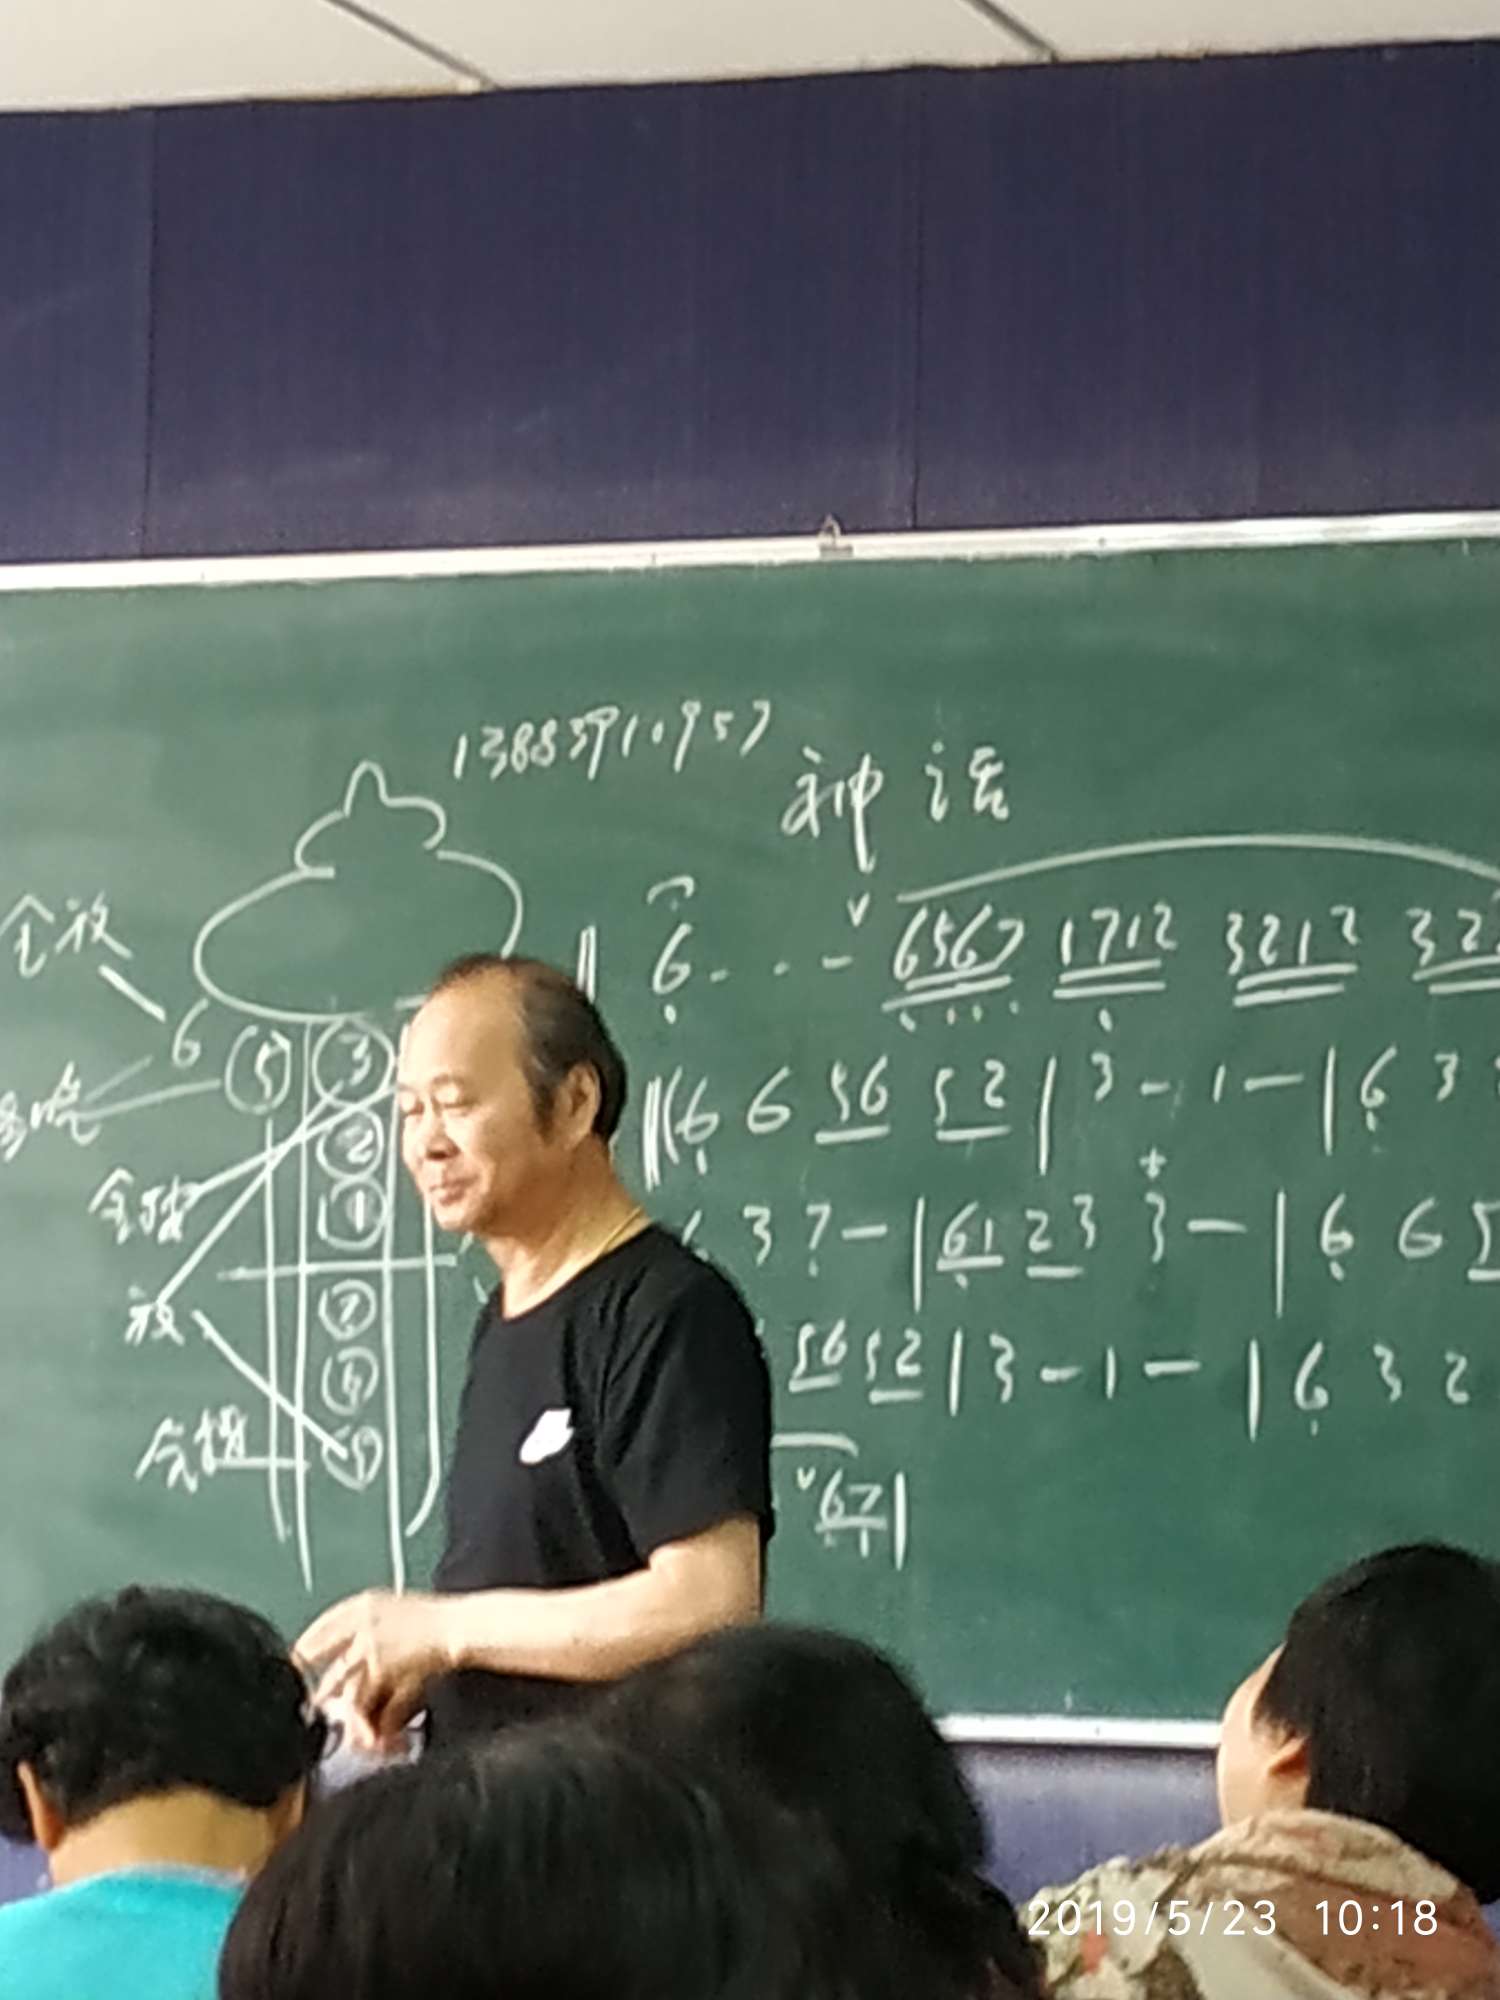 13883910957
神话
全放
6 ⑤ ③
②
①
放
⑦
⑥
⑤
‖ 6 · · - ∨ 6567 1712 3212 32
‖( 6 6 56 52 | 3 - 1 - | 6 3
3 7 - | 61 23 3 - | 6 6 5
56 52 | 3 - 1 - | 6 3 2
∨ 67 |
2019/5/23 10:18